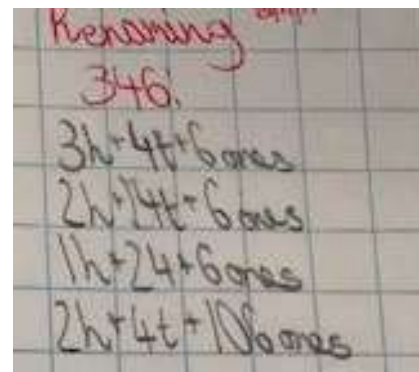 Renaming
346.
3h+4t+6 ones
2h+14t+6 ones
1h+24+6 ones
2h+4t+106 ones